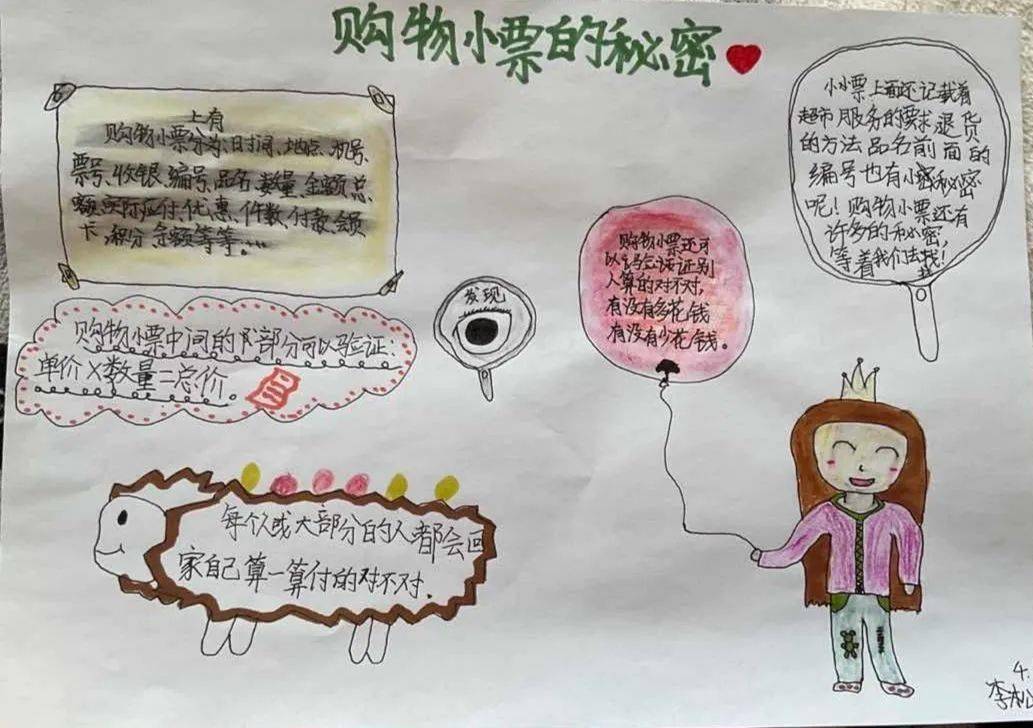 购物小票的秘密
上有
购物小票分为:日时间、地点、机号、
票号、收银、编号、品名、数量、金额、总
额、实际应付、优惠、件数、付款、会员
卡、积分、余额等等....
购物小票中间的下部分可以验证:
单价×数量=总价。
发现
购物小票还可
以验证别
人算的对不对,
有没有多花钱
有没有少花钱。
小票上面还记载着
超市服务的要求退货
的方法品名前面的
编号也有小秘密
呢!购物小票还有
许多的秘密,
等着我们去找!
每个人或大部分的人都会回
家自己算一算付的对不对.
4.
李